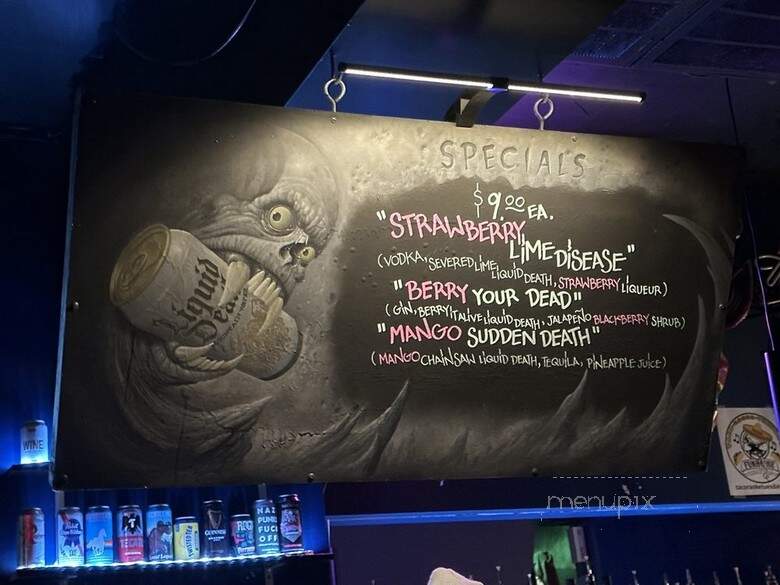 SPECIALS
$9.00 EA.
"STRAWBERRY
LIME DISEASE"
(VODKA, SEVERED LIME LIQUID DEATH, STRAWBERRY LIQUEUR)
"BERRY YOUR DEAD"
(GIN, BERRY IT ALIVE LIQUID DEATH, JALAPEÑO BLACKBERRY SHRUB)
"MANGO SUDDEN DEATH"
(MANGO CHAINSAW LIQUID DEATH, TEQUILA, PINEAPPLE JUICE)
Liquid
Death
WINE
TECATE
GUINNESS
NAZI
PUNKS
FUCK
OFF
menupix